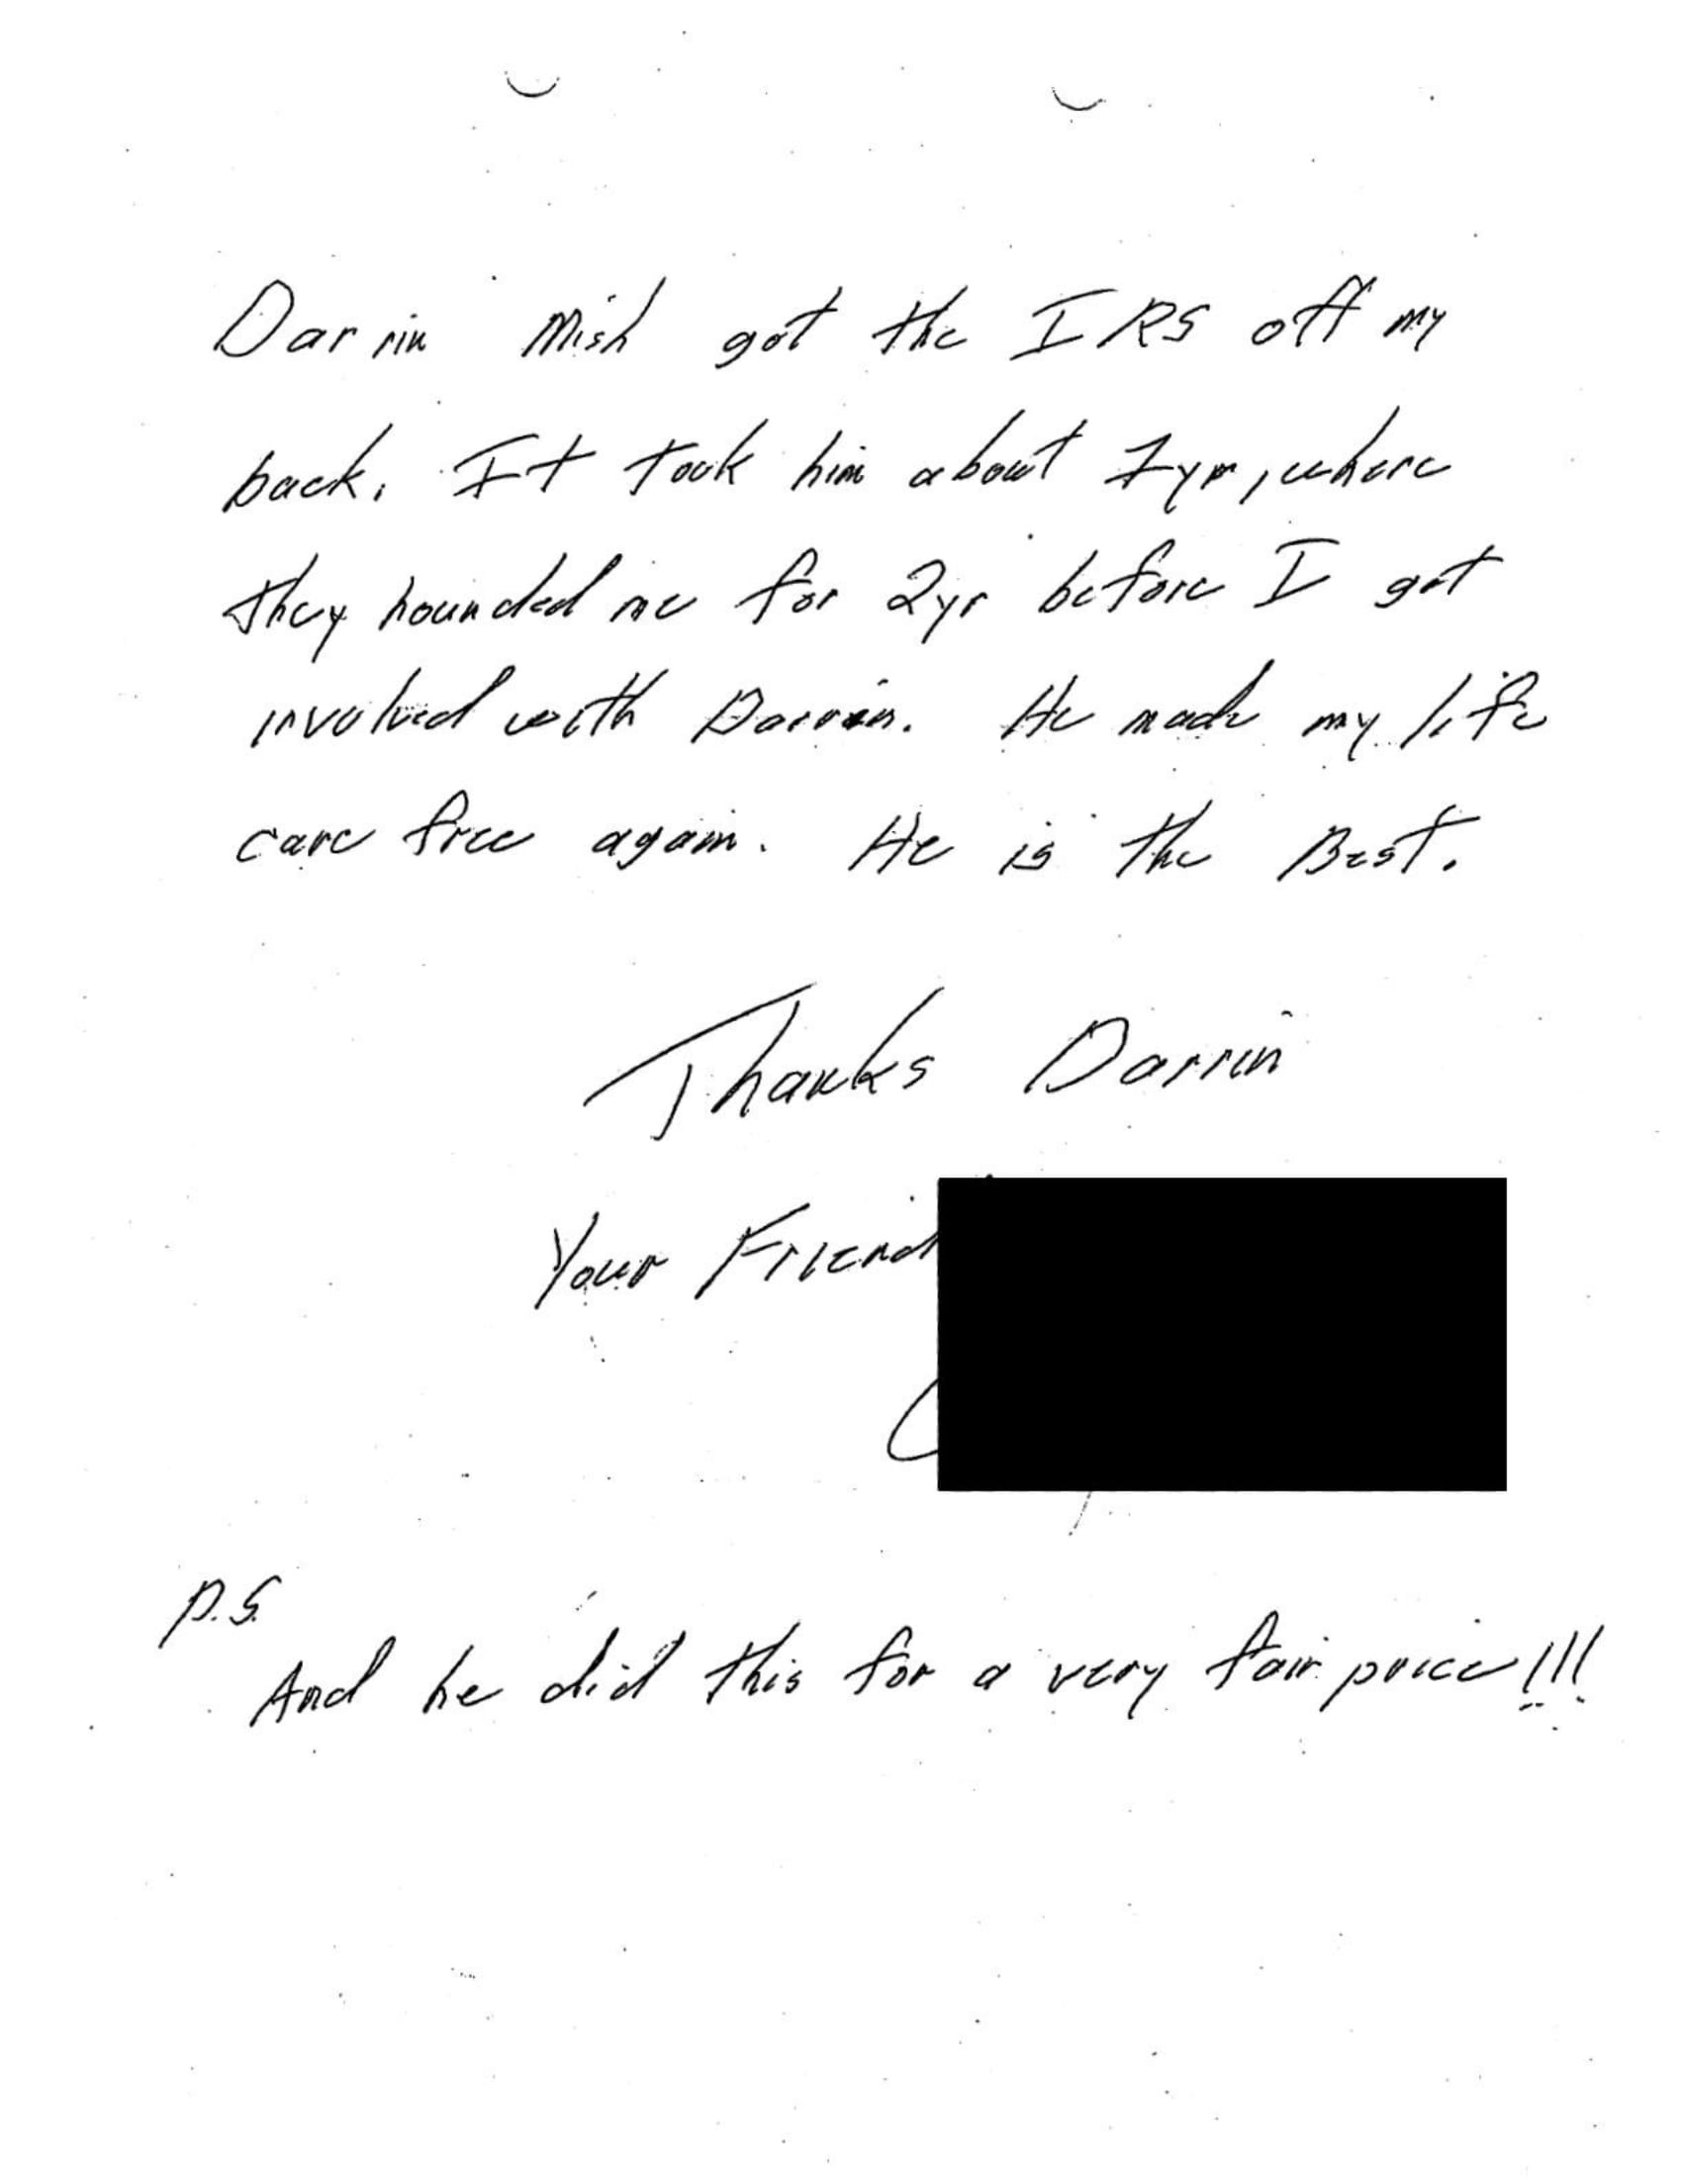 Darrin Mish got the IRS off my
back. It took him about 1yr, where
they hounded me for 2yr before I got
involved with Darrin. He made my life
care free again. He is the Best.
Thanks Darrin
Your Friend
P.S.
And he did this for a very fair price!!!